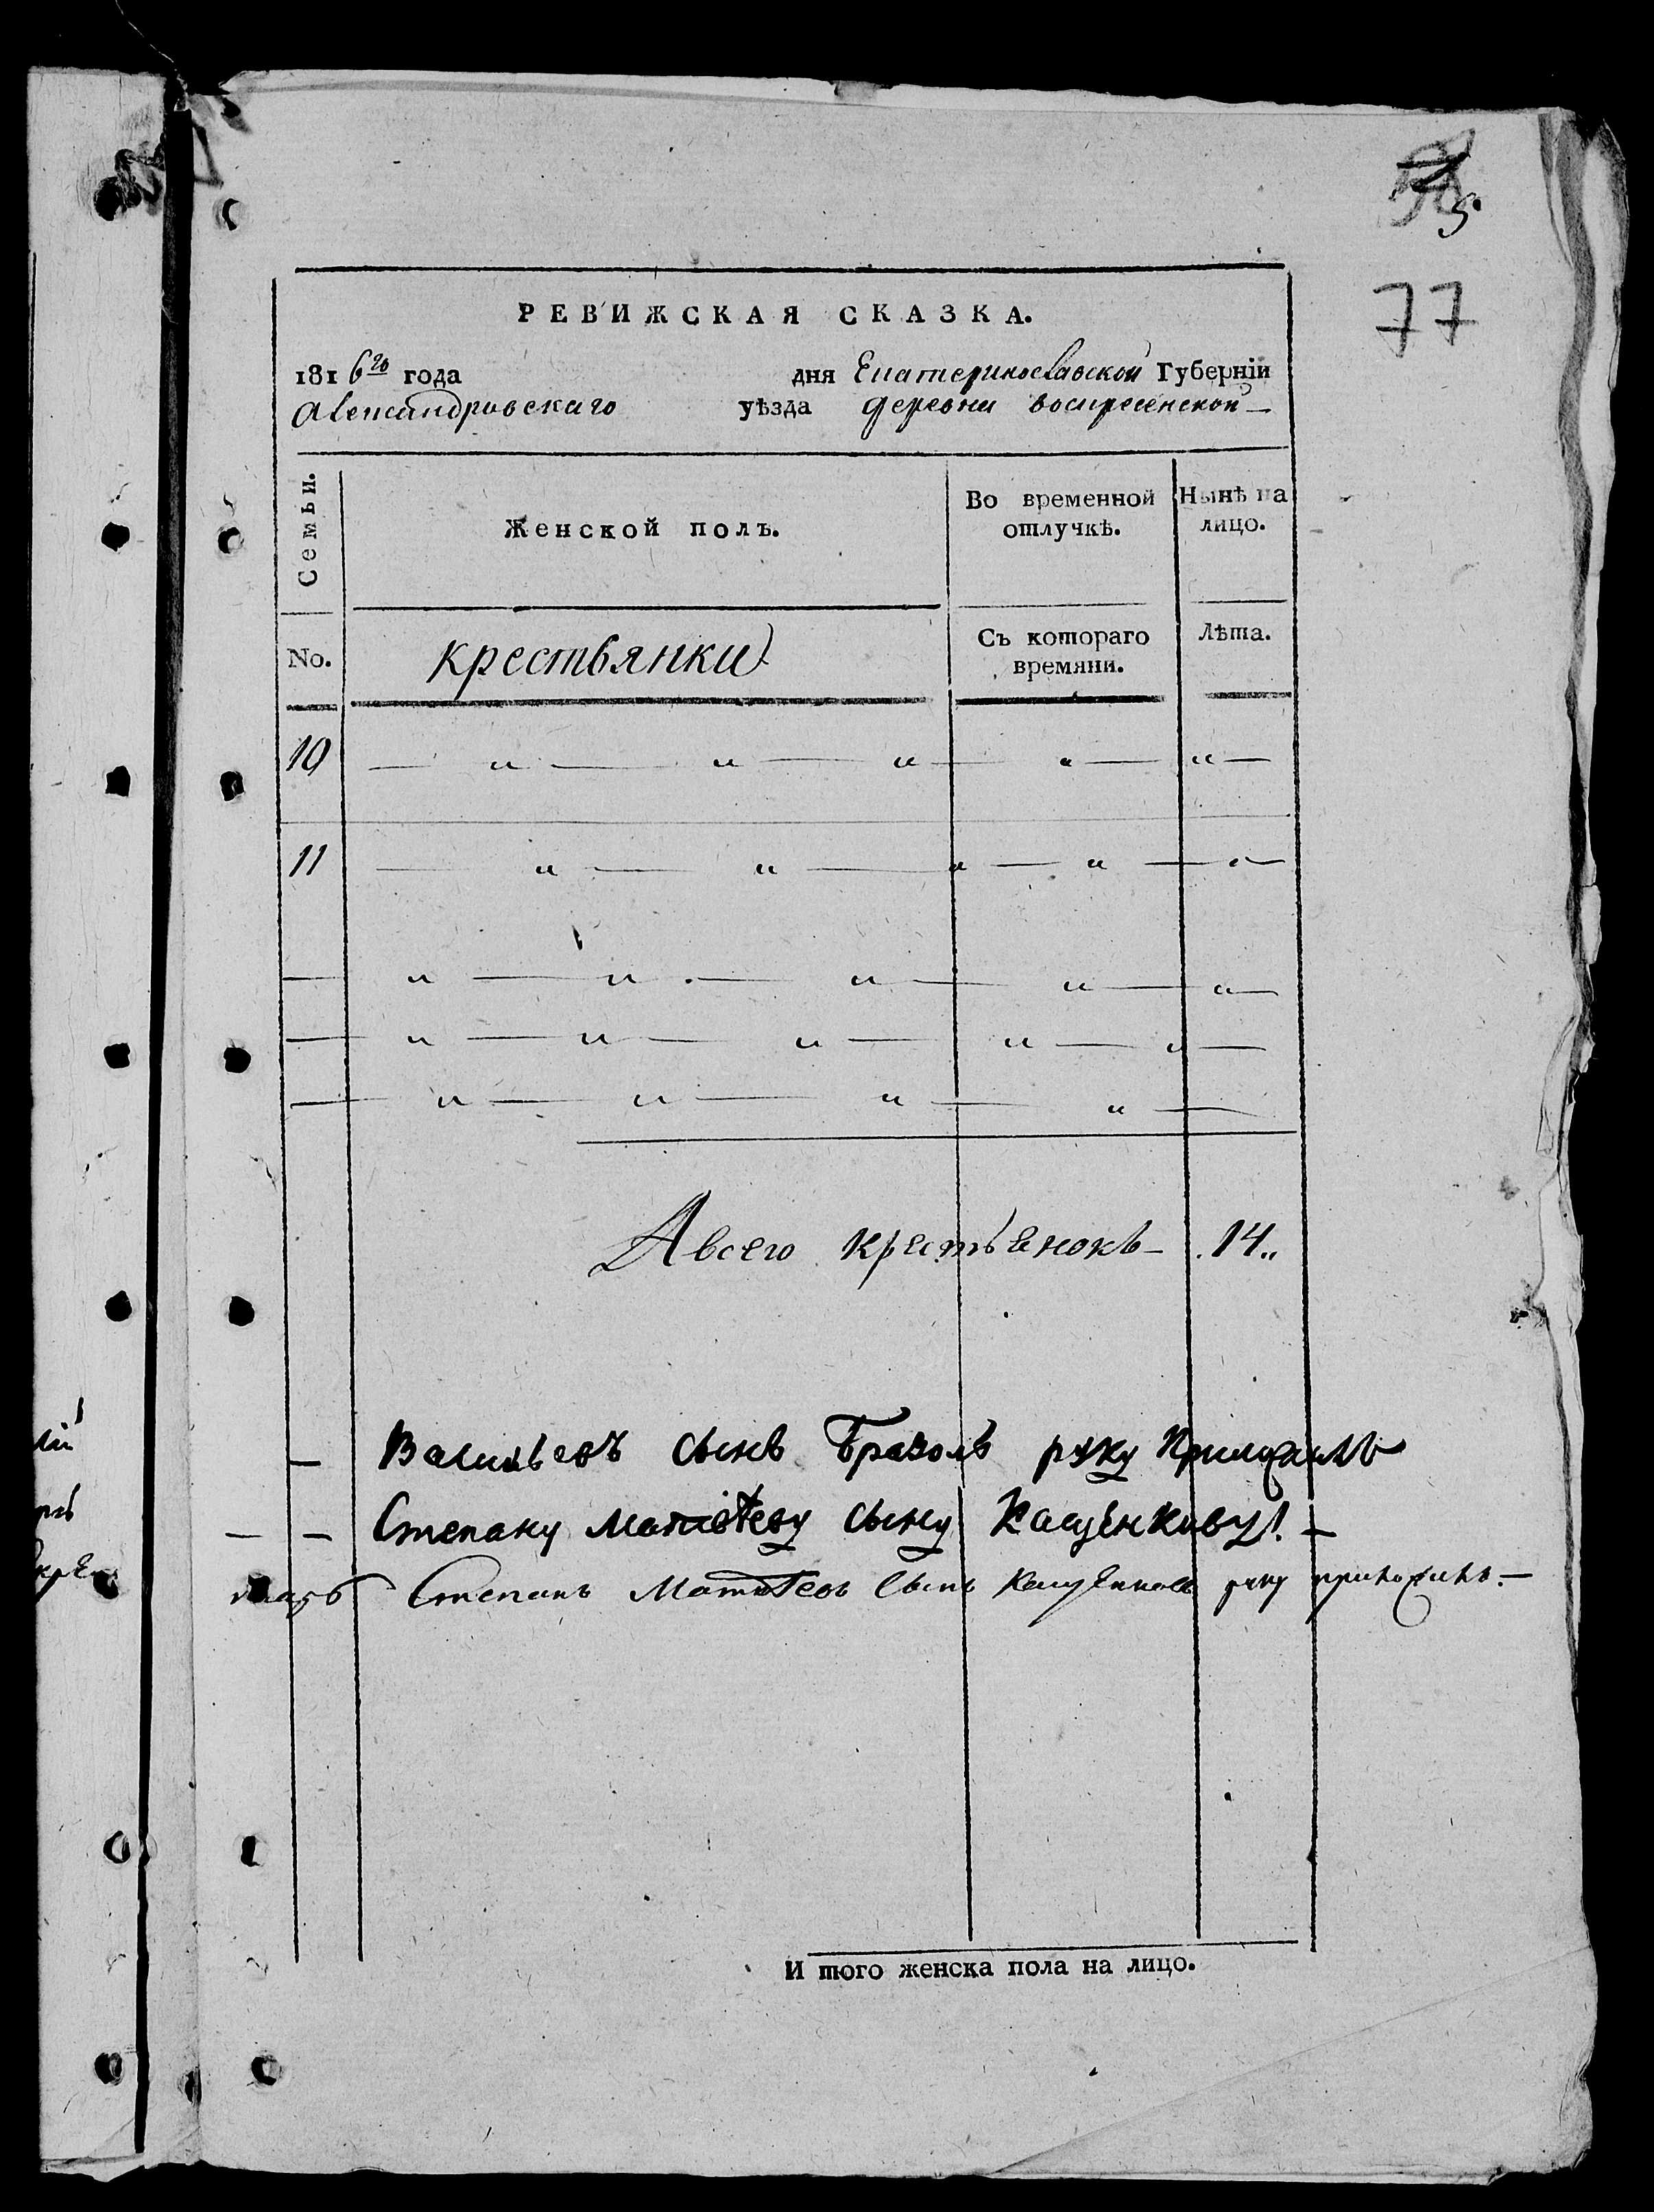 77
РЕВИЖСКАЯ СКАЗКА.
1816го года дня Екатеринославской Губерніи
Александровскаго уѣзда деревни воскресенской
Семьи. Женской полъ. Во временной отлучкѣ. Нынѣ на лицо.
No. крестьянки Съ котораго времяни. Лѣта.
10 — „ — „ — „ — „ — „ —
11 — „ — „ — „ — „ — „ —
— „ — „ — „ — „ — „ —
— „ — „ — „ — „ — „ —
— „ — „ — „ — „ —
А всего крестьянокъ 14„
— Васильевъ сынъ Бразоль руку приложилъ
— — Степану Матвѣеву сыну Кащенкову! —
Степанъ Матвѣевъ сынъ Кащенковъ руку приложилъ. —
И того женска пола на лицо.